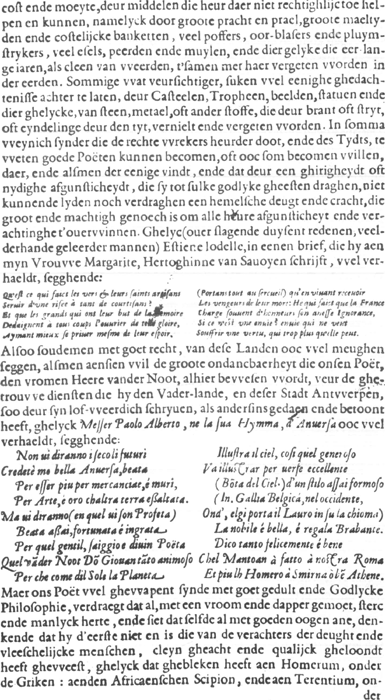 cost ende moeyte, deur middelen die heur daer niet rechtighlijctoe hel-
pen en kunnen, namelyck door groote pracht en prael, groote maelty-
den ende costelijcke banketten, veel poffers, oor-blasers ende pluym-
strykers, veel esels, peerden ende muylen, ende diergelycke die eer-lan-
ge iaren, als cleen van vveerden, t'samen met haer vergeten vvorden in
der eerden. Sommige vvat veursichtiger, suken vvel eenighe ghedach-
tenisse achter te laten, deur Casteelen, Tropheen, beelden, statuen ende
dier ghelycke, van steen, metael, oft ander stoffe, die deur brant oft stryt,
oft eyndelinge deur den tyt, vernielt ende vergeten vvorden. In somma
vveynich synder die de rechte vvrekers heurder doot, ende des Tydts, te
vveten goede Poëten kunnen becomen, oft ooc som becomen vvillen,
daer, ende alsmen der eenige vindt, ende dat deur een ghirigheydt oft
nydighe afgunsticheydt, die sy tot sulke godlyke gheesten draghen, niet
kunnende lyden noch verdraghen een hemelsche deugt ende cracht, die
groot ende machtigh genoech is om alle heure afgunsticheyt ende ver-
achtinghe t'ouervvinnen. Ghelyc (ouer slagende duysent redenen, veel-
derhande geleerder mannen) Estiene Iodelle, in eenen brief, die hy aen
myn Vrouvve Margarite, Hertoghinne van Sauoyen schrijft, vvel ver-
haeldt, segghende:
Qu'est ce qui faict les vers & leurs saints artisans
Seruir d'vne risee à tant de courtisans?
Et que les grands qui ont leur but de la memoire
Dedaignent à tous coups l'ouurier de telle gloire,
Aymant mieux se priuer mesme de leur espoir,
(Portant tout au sercueil) qu'en viuant receuoir
Les vengeurs de leur mort: He qui fait que la France
Charge souuent d'honneurs son asnesse Ignorance,
Si ce n'est vne enuie? enuie qui ne veut
Souffrir vne vertu, qui trop plus qu'elle peut.
Alsoo soudemen met goet recht, van dese Landen ooc vvel meughen
seggen, alsmen aensien vvil de groote ondancbaerheyt die onsen Poët,
den vromen Heere vander Noot, alhier bevvesen vvordt, veur de ghe-
trouvve diensten die hy den Vader-lande, en deser Stadt Antvverpen,
soo deur syn lof-vveerdich schryuen, als andersins gedaen ende betoont
heeft, ghelyck Messer Paolo Alberto, ne la sua Hymma, d'Anuersa ooc vvel
verhaeldt, segghende:
Non vi diranno i secoli futuri
Credete me bella Anuersa, beata
Per esser piu per mercanciae, é muri,
Per Arte, é oro ch'altra terra esaltata.
Ma vi diranno (en quel ui son Profeta)
Beata assai, fortunata é ingrata
Per quel gentil, saiggio e diuin Poëta
Quel vāder Noot Dō Giouan tāto animoso
Per che come dil Sole la Planeta
Illustra il ciel, cosi quel generoso
Va illustrar per uerse eccellente
(Bōta del Ciel.) d'un stilo assai formoso
(In, Gallia Belgica, nel occidente,
Ond', elgi porta il Lauro in su la chioma)
La nobile é bella, é regala Brabante.
Dico tanto felicemente é bene
Chel Mantoan à fatto à nostra Roma
Et piu lb Homero à Smirna ò l'e Athene.
Maer ons Poët vvel ghevvapent synde met goet gedult ende Godlycke
Philosophie, verdraegt dat al, met een vroom ende dapper gemoet, sterc
ende manlyck herte, ende siet dat selfde al met goeden oogen ane, den-
kende dat hy d'eerste niet en is die van de verachters der deught ende
vleeschelijcke menschen, cleyn gheacht ende qualijck gheloondt
heeft ghevveest, ghelyck dat ghebleken heeft aen Homerum, onder
de Griken: aenden Africaenschen Scipion, ende aen Terentium, on-
der